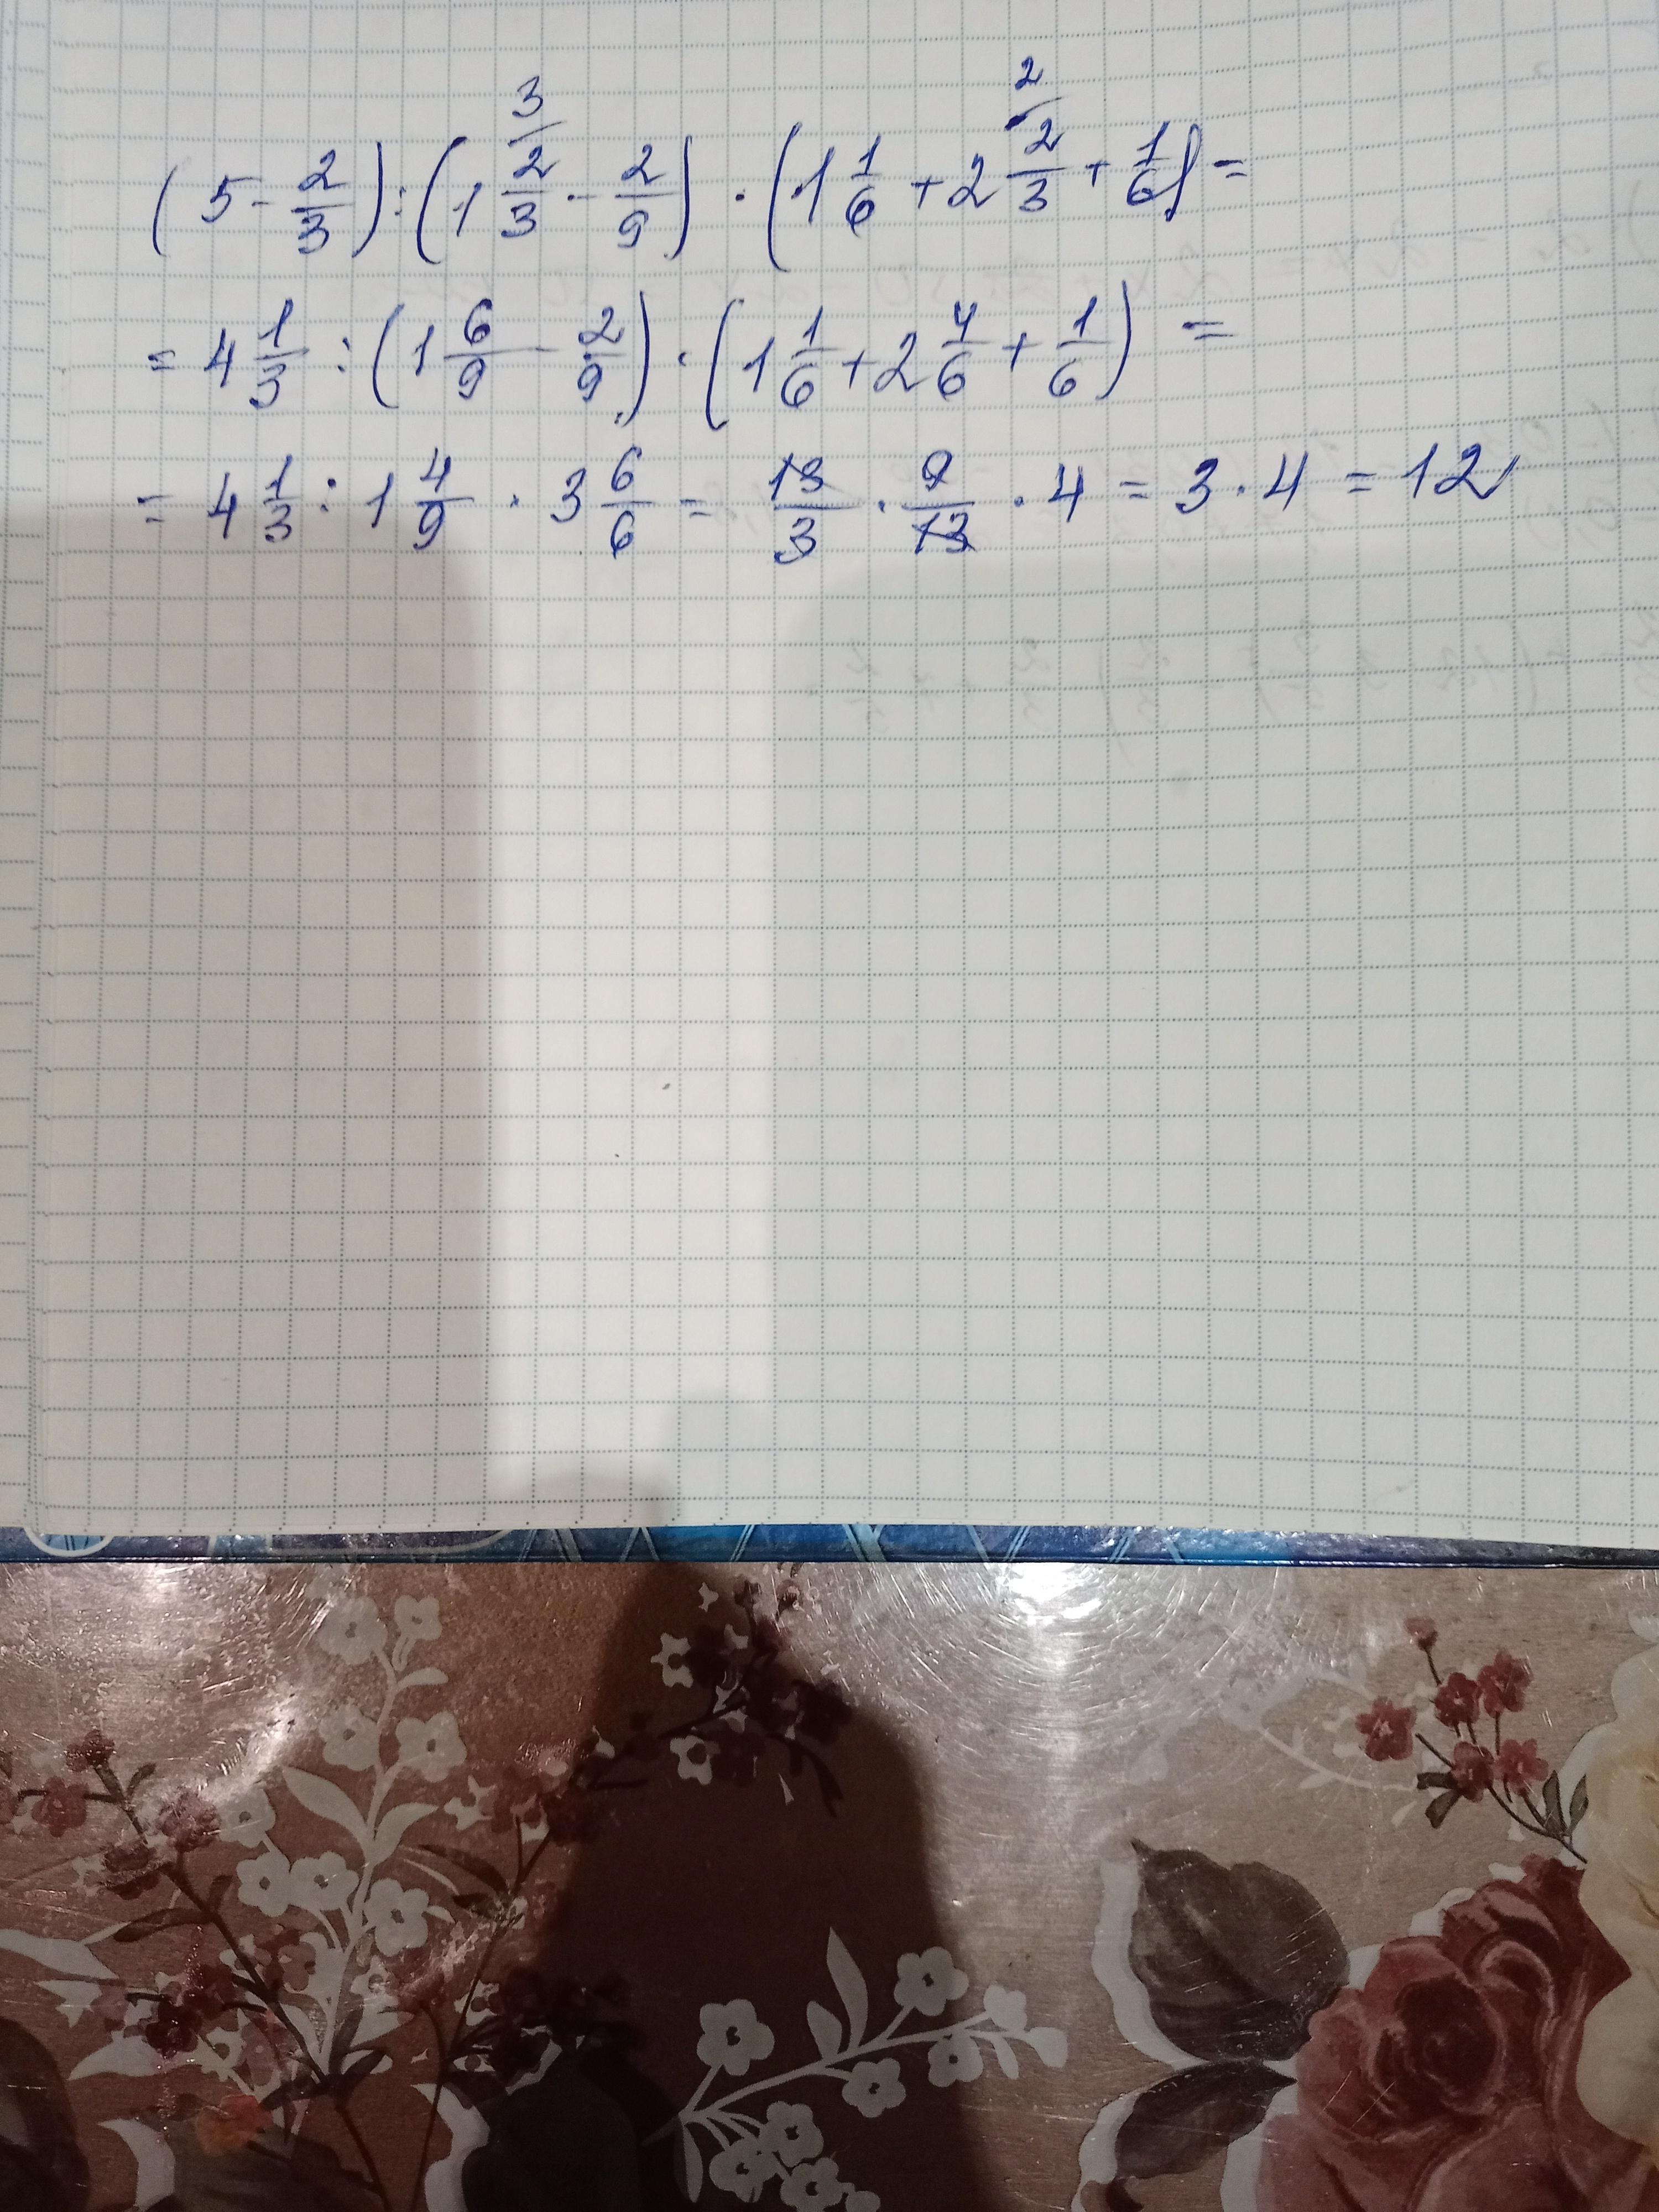 (5 - 2/3) : (1 2/3 - 2/9) · (1 1/6 + 2 2/3 + 1/6) =
= 4 1/3 : (1 6/9 - 2/9) · (1 1/6 + 2 4/6 + 1/6) =
= 4 1/3 : 1 4/9 · 3 6/6 = 13/3 · 9/13 · 4 = 3 · 4 = 12